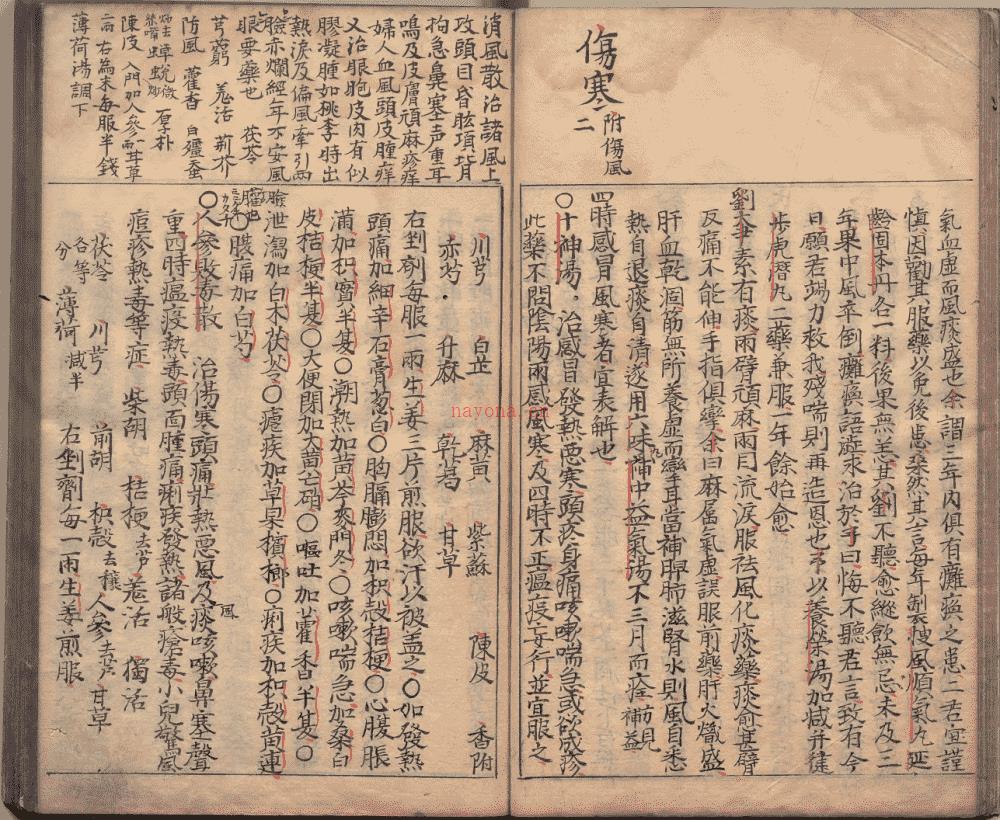 傷寒二
附傷風
氣血虛而風痰盛也余謂三年內俱有癱瘓之患二君宜謹
慎因勸其服藥以免後患桑然其言每年製搜風順氣丸延
齡固本丹各一料後果無恙其劉不聽愈縱飲無忌未及三
年果中風卒倒癱瘓語澁求治於予曰悔不聽君言致有今
日願君竭力救我殘喘則再造恩也予以養榮湯加減并健
步虎潛丸二藥兼服一年餘始愈
劉太素有痰兩臂頑麻兩目流淚服祛風化痰藥痰愈甚臂
反痛不能伸手指俱攣余曰麻屬氣虛誤服前藥肝火熾盛
肝血乾涸筋無所養虛而攣耳當補脾肺滋腎水則風自息
熱自退痰自清遂用六味丸補中益氣湯不三月而痊方見補益
四時感冒風寒者宜表解也
○十神湯。治感冒發熱惡寒頭疼身痛咳嗽喘急或欲成疹
此藥不問陰陽兩感風寒及四時不正瘟疫妄行並宜服之
消風散治諸風上
攻頭目昏眩項背
拘急鼻塞声重耳
鳴及皮膚頑麻疹痒
婦人血風頭皮腫痒
又治眼胞皮肉有似
膠凝腫如桃李時出
熱淚及偏風牽引兩
瞼赤爛經年不安風
眼要藥也 茯苓
芎藭 羌活 荊芥
防風 藿香 白殭蚕
蟬蛻 厚朴
陳皮 人參 甘草
右為末每服半錢
薄荷湯調下
川芎 白芷 麻黃 紫蘇 陳皮 香附
赤芍 升麻 乾葛 甘草
右剉劑每服一兩生姜三片煎服欲汗以被盖之○如發熱
頭痛加細辛石膏葱白○胸膈膨悶加枳殼桔梗○心腹脹
滿加枳實半夏○潮熱加黃芩麥門冬○咳嗽喘急加桑白
皮桔梗半夏○大便閉加大黃芒硝○嘔吐加藿香半夏○
泄瀉加白朮茯苓○瘧疾加草果檳榔○痢疾加枳殼黃連
○腹痛加白芍
○人參敗毒散 治傷寒頭痛壯熱惡風及風痰咳嗽鼻塞聲
重四時瘟疫熱毒頭面腫痛痢疾發熱諸般瘡毒小兒驚風
痘疹熱毒等症 柴胡 桔梗去芦 羌活 獨活
茯苓 川芎 前胡 枳殼去穰 人參去芦 甘草
各等分 薄荷減半 右剉劑每一兩生姜煎服
nayona.cn